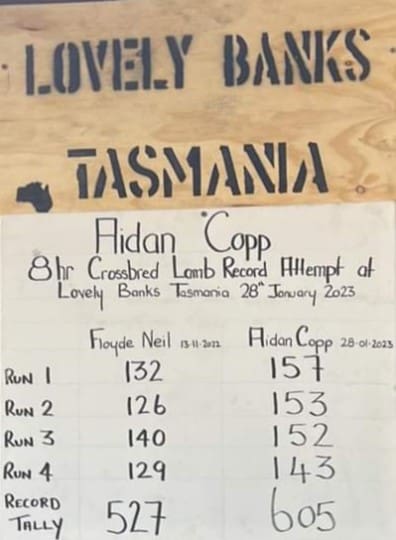 LOVELY BANKS
TASMANIA
Aidan Copp
8hr Crossbred Lamb Record Attempt at
Lovely Banks Tasmania 28th January 2023
Floyde Neil 13-11-2022 Aidan Copp 28-01-2023
RUN 1 132 157
RUN 2 126 153
RUN 3 140 152
RUN 4 129 143
RECORD
TALLY 527 605